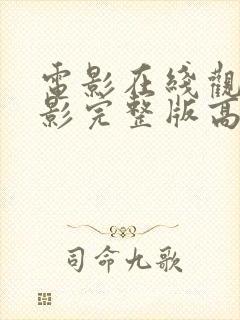 電影在綫觀
影完整版高
司命九歌